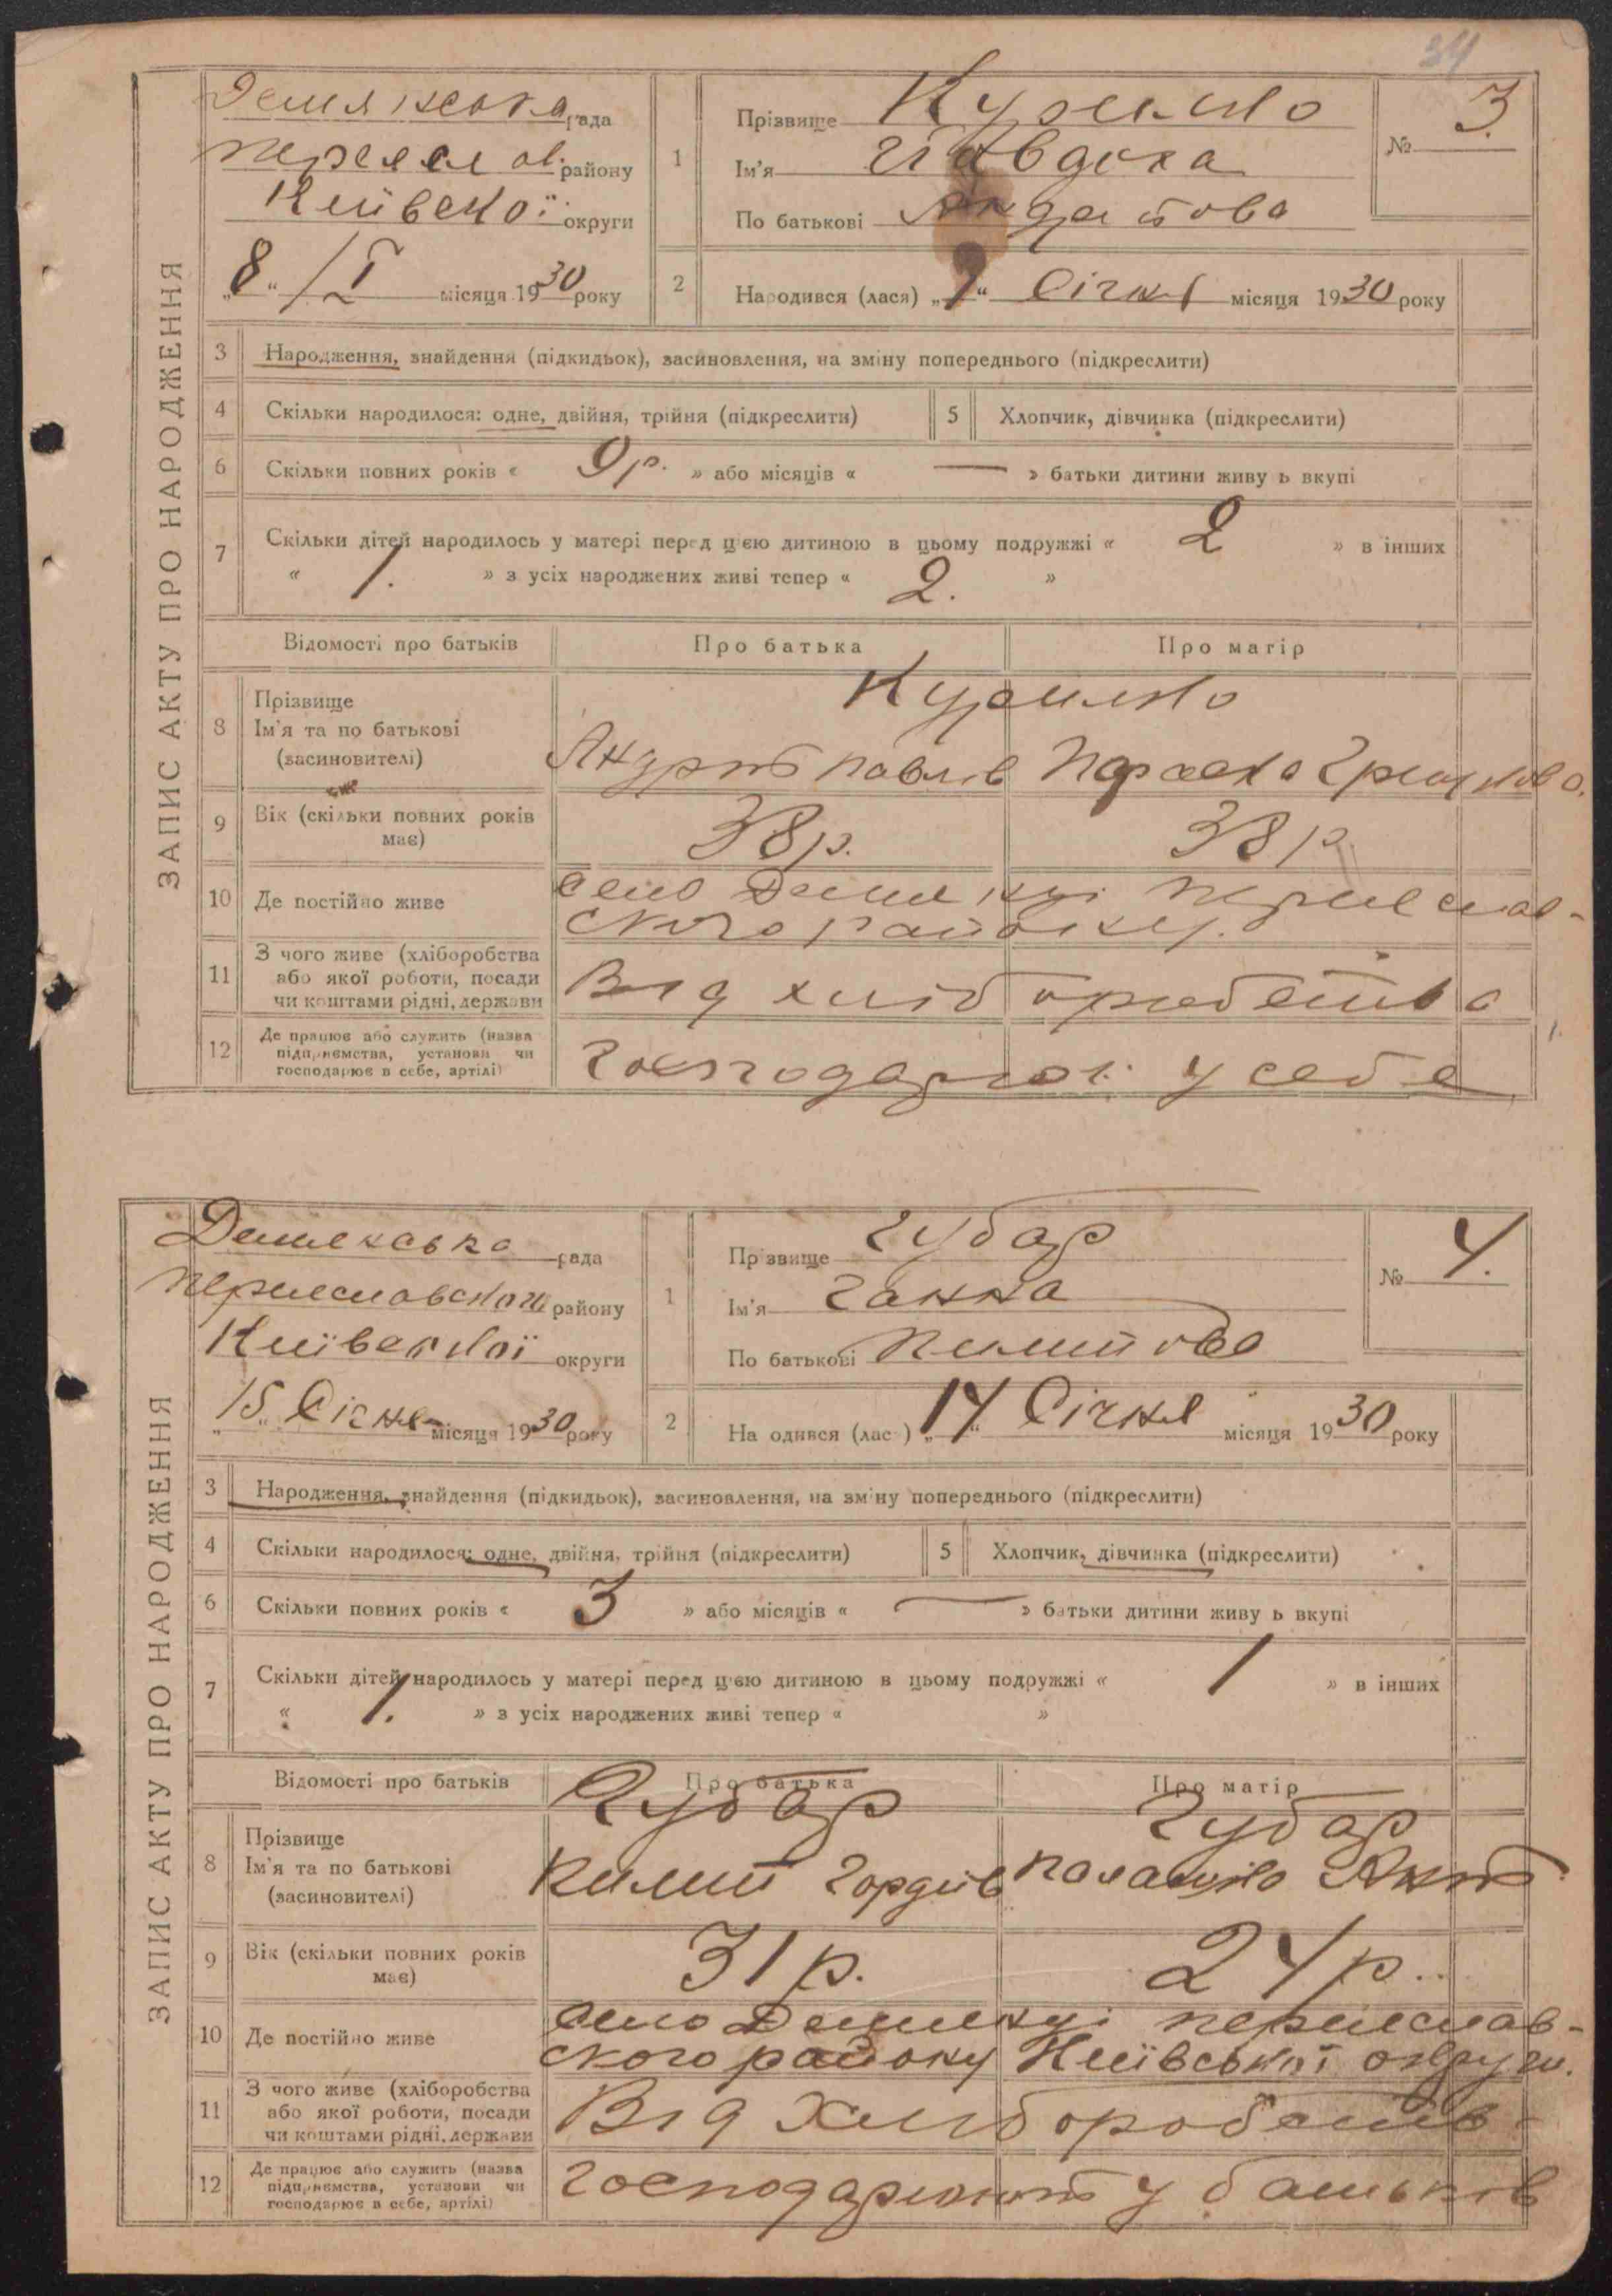 34
ЗАПИС АКТУ ПРО НАРОДЖЕННЯ
Демянська рада
Переясл ов. району
Київської округи
„8“ /I місяця 1930 року
1
Прізвище Курилко
Ім'я Явдоха
По батькові Андрітова
№ 3.
2
Народився (лася) „7“ Січня місяця 1930 року
3 Народження, знайдення (підкидьок), засиновлення, на зміну попереднього (підкреслити)
4 Скільки народилося: одне, двійня, трійня (підкреслити) 5 Хлопчик, дівчинка (підкреслити)
6 Скільки повних років « 9 р. » або місяців « — » батьки дитини живу ь вкупі
7 Скільки дітей народилось у матері перед цією дитиною в цьому подружжі « 2 » в інших
« 1. » з усіх народжених живі тепер « 2. »
Відомості про батьків Про батька Про матір
8 Прізвище Курилко
Ім'я та по батькові Андріт Павлів Параска
(засиновителі)
9 Вік (скільки повних років має) 38 р. 38 р.
10 Де постійно живе село Демянці Переяслав-
ского району.
11 З чого живе (хліборобства або якої роботи, посади чи коштами рідні, держави Від хліборобства
12 Де працює або служить (назва підприємства, установи чи господарює в себе, артілі) Господарює у себе
ЗАПИС АКТУ ПРО НАРОДЖЕННЯ
Демянська рада
Переяславского району
Київської округи
„15“ Січня місяця 1930 року
1
Прізвище Губар
Ім'я Ганна
По батькові Килитова
№ 4.
2
Народився (лась) „14“ Січня місяця 1930 року
3 Народження, знайдення (підкидьок), засиновлення, на зміну попереднього (підкреслити)
4 Скільки народилося: одне, двійня, трійня (підкреслити) 5 Хлопчик, дівчинка (підкреслити)
6 Скільки повних років « 3 » або місяців « — » батьки дитини живу ь вкупі
7 Скільки дітей народилось у матері перед цією дитиною в цьому подружжі « 1 » в інших
« 1. » з усіх народжених живі тепер « »
Відомості про батьків Про батька Про матір
8 Прізвище Губар Губар
Ім'я та по батькові Килит Гордіїв
(засиновителі)
9 Вік (скільки повних років має) 31 р. 24 р.
10 Де постійно живе село Демянці Переяслав-
ского району Київської округи.
11 З чого живе (хліборобства або якої роботи, посади чи коштами рідні, держави Від Хліборобств
12 Де працює або служить (назва підприємства, установи чи господарює в себе, артілі) Господарюють у батьків